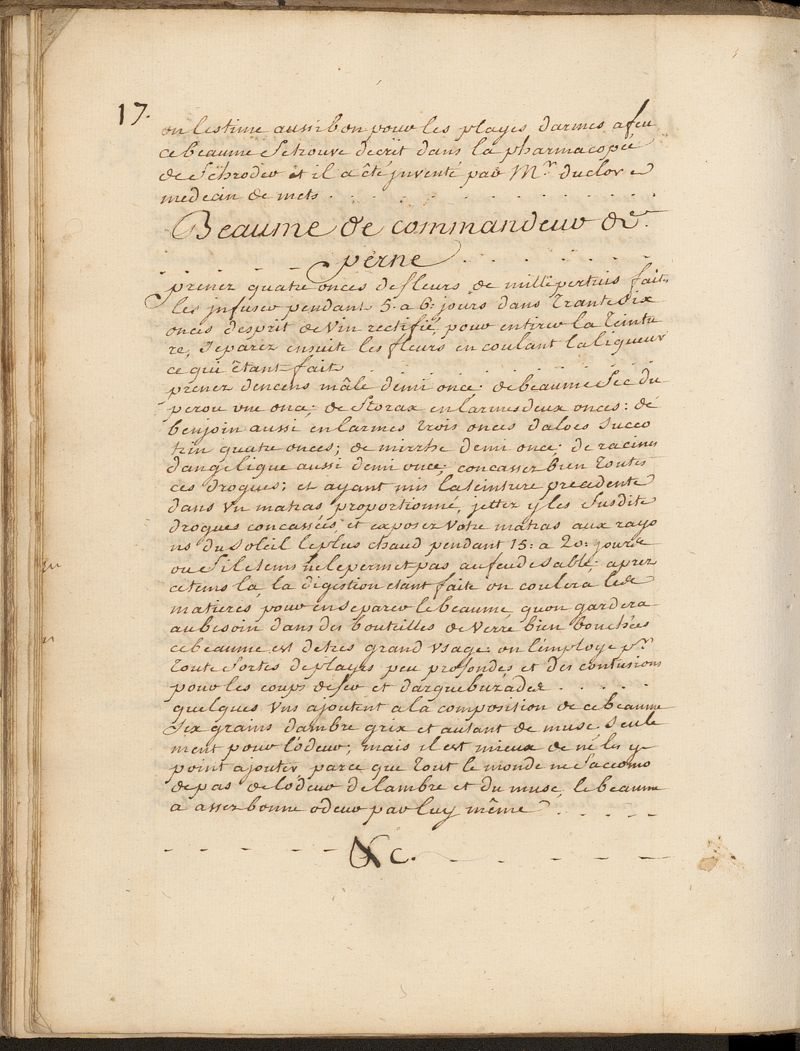 17.
on l'estime aussi bon pour les playes d'armes a feu
ce beaume se trouve decrit dans la pharmacopée
de Schroder et il a été jnventé par Mr. duclos
medecin de mets . . . . . . . . . . .
Beaume de commandeur de
perne . . . . . .
prenez quatre onces de fleurs de millepertuis faites
les jnfuser pendant 5. a 6. jours dans trante six
onces desprit de vin rectifié, pour entirer la teintu
re, Separez ensuite les fleurs en coulant la liqueur
ce qui étant fait . . . . . . . . .
prenez dencens mâle demi once: de beaume Sec du
perou une once: de Storax en larmes deux onces: de
benjoin aussi en larmes trois onces d'aloes Succo
trin quatre onces; de mirrhe demi once: de racines
dangelique aussi demi once: concassez bien toutes
ces drogues; et ayant mis la teinture precedente
dans un matras proportionné, jettez y les Susdite
drogues concassées, et exposez votre matras aux rayo
ns du Soleil le plus chaud pendant 15. a 20. jours
ou Si le tems ne le permet pas au feu de sable, aprez
ce tems la, la digestion etant faite on coulera les
matieres pour en separer le beaume, quon gardera
au besoin dans des bouteilles de verre bien bouchées
ce beaume est detres grand usage; on l'employe pr.
toute Sortes de playes peu profondes et des contusions
pour les coups defeu et darquebuzades . . . . .
quelques uns ajoutent a la composition de ce beaume
Six grains d'ambre grix et autant de musc, Seule
ment pour l'odeur; mais il est mieux de ne les y
point ajouter parce que tout le monde ne Saccomo
de pas de lodeur de lambre et du musc, le beaume
a assez bonne odeur par luy même . . . . .
&c.